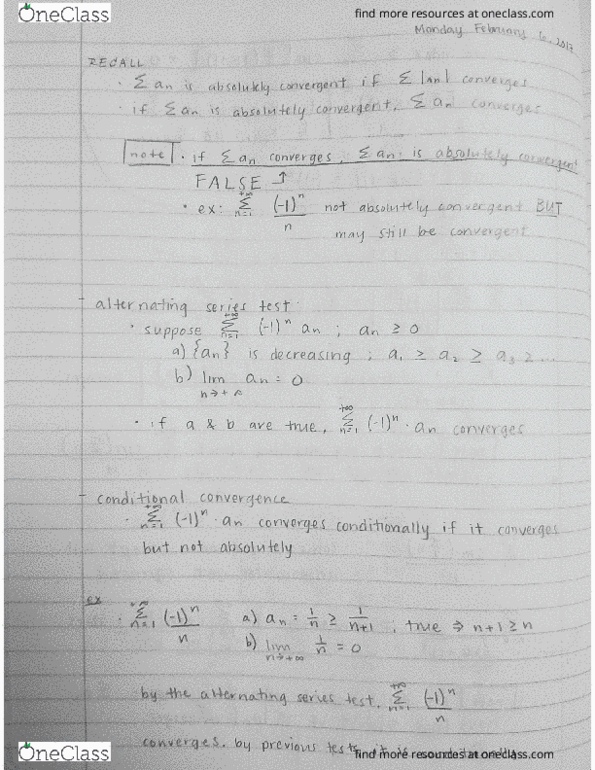 OneClass
find more resources at oneclass.com
Monday February 6, 2017
RECALL
· Σ an is absolutely convergent if Σ |an| converges
· if Σ an is absolutely convergent, Σ an converges
note · if Σ an converges, Σ an is absolutely convergent
FALSE ↑
· ex: +∞ Σ n=1 (-1)^n / n not absolutely convergent BUT
may still be convergent
- alternating series test
· suppose +∞ Σ n=1 (-1)^n an ; an ≥ 0
a) {an} is decreasing ; a1 ≥ a2 ≥ a3 ≥ ...
b) lim n→+∞ an = 0
· if a & b are true, +∞ Σ n=1 (-1)^n · an converges
- conditional convergence
· +∞ Σ n=1 (-1)^n · an converges conditionally if it converges
but not absolutely
ex
· +∞ Σ n=1 (-1)^n / n a) an = 1/n ≥ 1/n+1 , true ⇒ n+1 ≥ n
b) lim n→+∞ 1/n = 0
by the alternating series test, +∞ Σ n=1 (-1)^n / n
converges. by previous tests,
OneClass
find more resources at oneclass.com